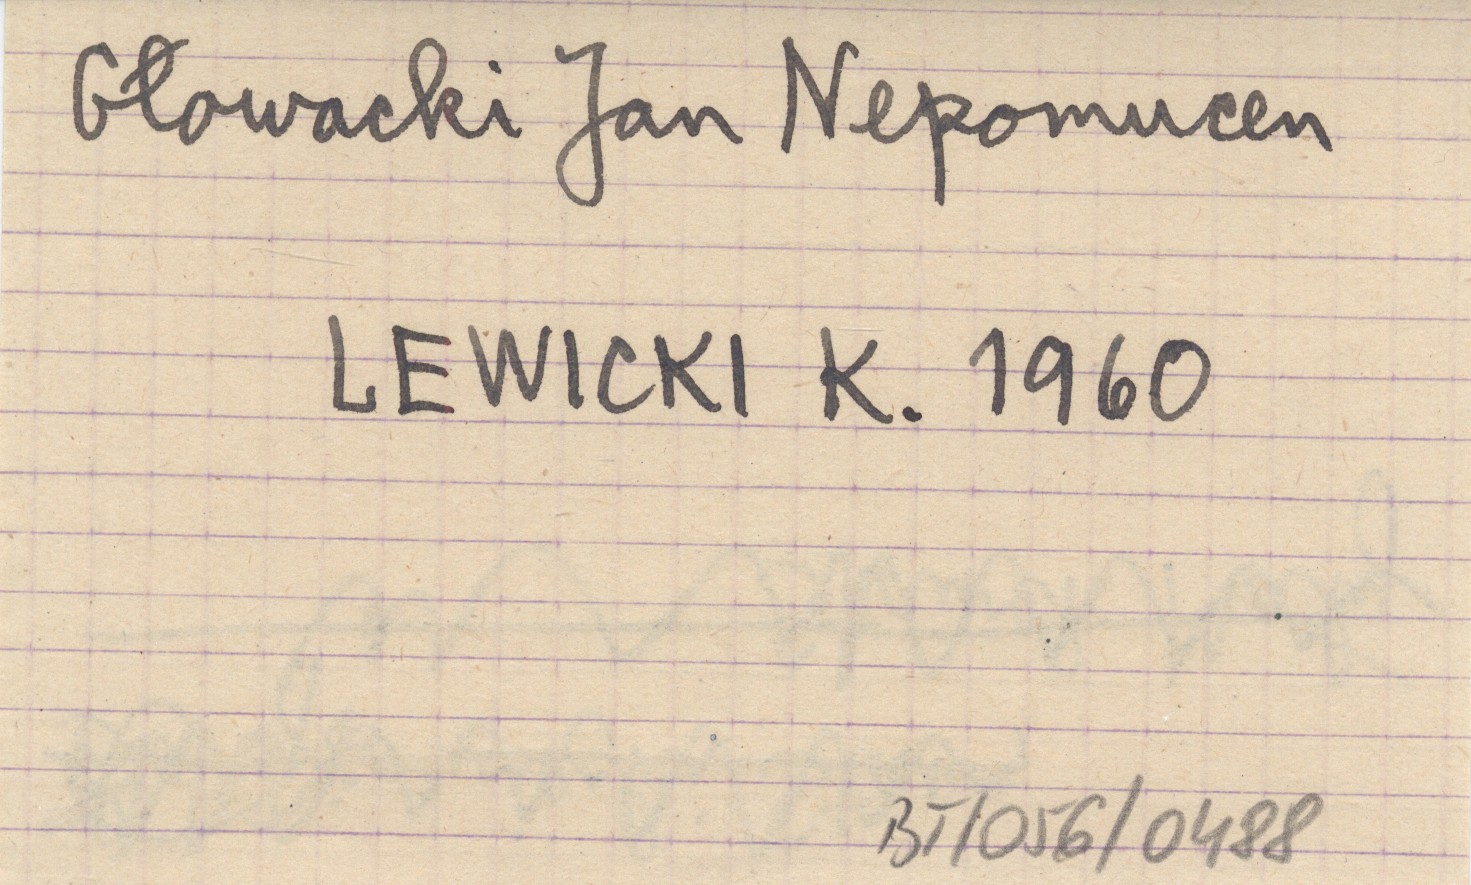 Głowacki Jan Nepomucen
LEWICKI K. 1960
BT/056/0488